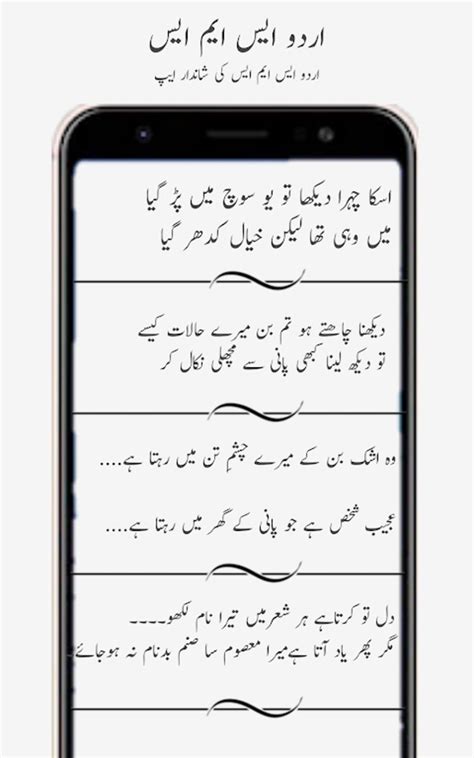 اردو ایس ایم ایس
اردو ایس ایم ایس کی شاندار ایپ
اسکا چہرا دیکھا تو یو سوچ میں پڑ گیا
میں وہی تھا لیکن خیال کدھر گیا
دیکھنا چاھتے ہو تم بن میرے حالات کیسے
تو دیکھ لینا کبھی پانی سے مچھلی نکال کر
وہ اشک بن کے میرے چشمِ تن میں رہتا ہے....
عجیب شخص ہے جو پانی کے گھر میں رہتا ہے....
دل تو کرتاہے ہر شعرمیں تیرا نام لکھو۔۔۔۔
مگر پھر یاد آتا ہےمیرا معصوم سا صنم بدنام نہ ہوجائے۔